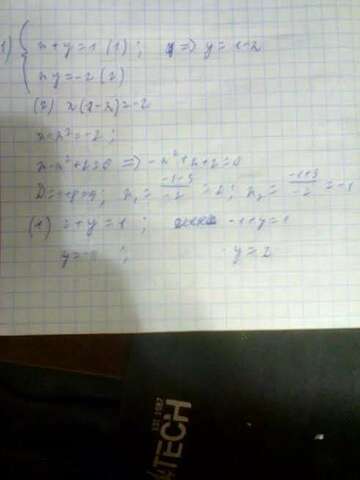 1) { x+y=1 (1) ; => y = 1-x
xy=-2 (2)
(2) x(1-x)=-2
x-x²=-2;
x-x²+2=0 => -x²+x+2=0
D=1+8=9; x₁ = (-1-3)/-2 = 2; x₂ = (-1+3)/-2 = -1
(1) 2+y=1 ; -1+y=1
y=-1 ; y=2
EST 1987
TECH